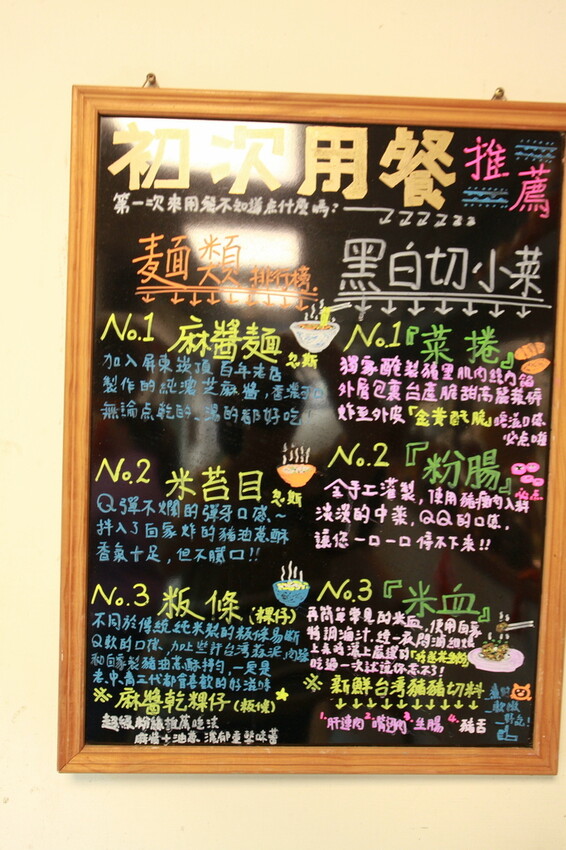 初次用餐
推薦
第一次來用餐不知道点什麼嗎?
麵類
排行榜.
No.1 麻醬麵
加入屏東崁頂百年老店
製作的純濃芝麻醬,香濃可口
無論点乾的、湯的都好吃
No.2 米苔目
Q彈不爛的彈牙口感、~
拌入了自家炸的豬油蔥酥
香氣十足,但不膩口!!
No.3 粄條(粿仔)
不同於傳統純米製的粄條易斷
Q軟的口感,加上
和自家製豬油蔥酥拌勻,一定是
老中青三代都喜歡的好滋味
※麻醬乾粿仔(粄條)
超級粉絲推薦吃法
麻醬+油蔥、濃郁重
黑白切小菜
No.1『菜捲』
獨家醃製豬里肌肉
外層包裹台產脆甜高麗菜
炸至外皮「金黃酥脆」
必点喔
No.2『粉腸』
必点
全手工灌製,使用豬瘦肉入料
淡淡的中藥,QQ的口感,
讓您一口一口停不下來!!
No.3『米血』
再簡單常見的米血,使用自家
特調滷汁,
吃過一次試讓你忘不了!
※新鮮台灣豬豬切料
1.肝連肉 2.嘴邊肉 3.生腸 4.豬舌